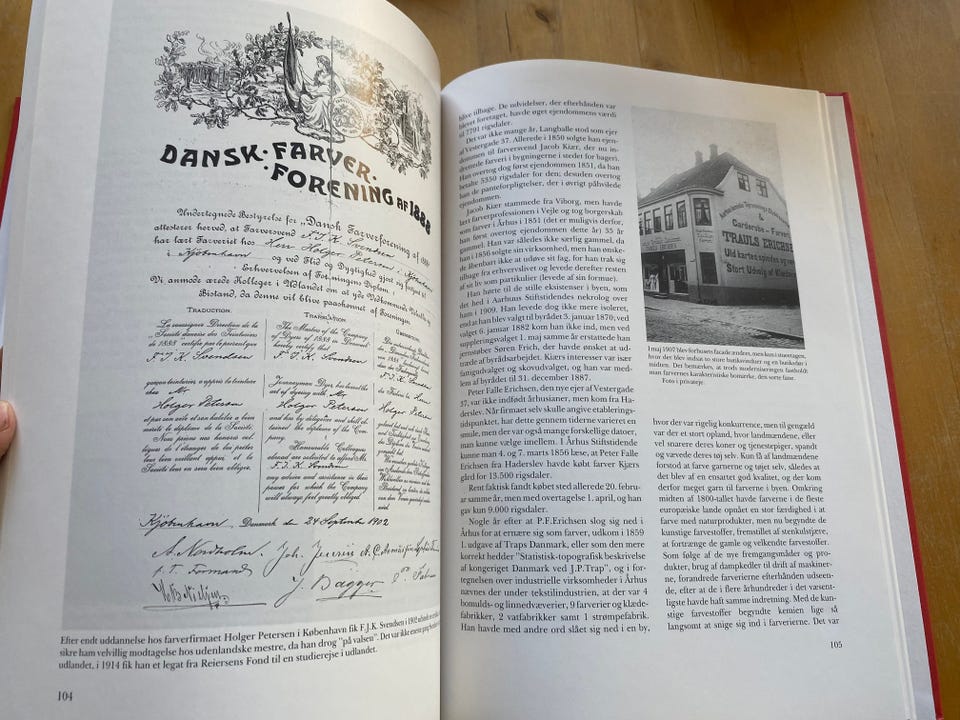 DANSK·FARVER·
FORENING AF 1888
Undertegnede Bestyrelse for "Dansk Farverforening af 1888
attesterer herved, at Farversvend F.J.K. Svendsen
har lært Farveriet hos Herr Holger Petersen i Kjøbenhavn
i Kjøbenhavn og ved Flid og Dygtighed gjort sig
Erhvervelsen af Foreningens Diplom.
Vi anmode ærede Kolleger i Udlandet om at yde
Bistand, da denne vil blive paaskønnet af Foreningen
TRADUCTION.
La soussignée Direction de la
"Société danoise des Teinturiers
de 1888 certifie par la présent que
F.J.K. Svendsen
garçon teinturier, a appris la teinture
chez Mr
Holger Petersen
et par son zèle et son habileté a bien
mérité le diplôme de la Société.
Nous prions nos honorés col-
lègues de l'étranger de lui prêter
leur bienveillant appui, et la
Société leur en sera bien obligée.
TRANSLATION.
The Masters of the Company
of Dyers of 1888 in Denmark
hereby certify that
F.J.K. Svendsen
Journeyman Dyer has learned the
art of dyeing with Mr.
Holger Petersen
and has by diligence and skill ob-
tained the diploma of the Com-
pany.
Honourable Colleagues
abroad are intreated to afford Mr.
F.J.K. Svendsen
any advice and assistance in their
power for which the Company
will always feel greatly obliged.
F.J.K. Svendsen
Holger Petersen
Kjøbenhavn, Danmark den 24 Septembr 1902
A. Nordholm. Joh.
p.t. Formand
J. Bagger
Efter endt uddannelse hos farverfirmaet Holger Petersen i København fik F.J.K. Svendsen i 1902 udstedt
sikre ham velvillig modtagelse hos udenlandske mestre, da han drog "på valsen". Det var ikke eneste gang
udlandet, i 1914 fik han et legat fra Reiersens Fond til en studierejse i udlandet.
104
blive tilbage. De udvidelser, der efterhånden var
blevet foretaget, havde øget ejendommens værdi
til 7791 rigsdaler.
Det var ikke mange år, Langballe stod som ejer
af Vestergade 37. Allerede i 1850 solgte han ejen-
dommen til farversvend Jacob Kiær, der nu in-
drettede farveri i bygningerne i stedet for bageri.
Han overtog dog først ejendommen 1851, da han
betalte 5350 rigsdaler for den; desuden overtog
han de panteforpligtelser, der i øvrigt påhvilede
ejendommen.
Jacob Kiær stammede fra Viborg, men havde
lært farverprofessionen i Vejle og tog borgerskab
som farver i Århus i 1851 (det er muligvis derfor,
han først overtog ejendommen dette år) 35 år
gammel. Han var således ikke særlig gammel, da
han i 1856 solgte sin virksomhed, men han ønske-
de åbenbart ikke at udøve sit fag, for han trak sig
tilbage fra erhvervslivet og levede derefter resten
af sit liv som partikulier (levede af sin formue).
Han hørte til de stille eksistenser i byen, som
det hed i Aarhuus Stiftstidendes nekrolog over
ham i 1909. Han levede dog ikke mere isoleret,
end at han blev valgt til byrådet 3. januar 1870, ved
valget 6. januar 1882 kom han ikke ind, men ved
suppleringsvalget 1. maj samme år erstattede han
jernstøber Søren Frich, der havde ønsket at ud-
træde af byrådsarbejdet. Kiærs interesser var især
fattigudvalget og skovudvalget, og han var med-
lem af byrådet til 31. december 1887.
Peter Falle Erichsen, den nye ejer af Vestergade
37, var ikke indfødt århusianer, men kom fra Ha-
derslev. Når firmaet selv skulle angive etablerings-
tidspunktet, har dette gennem tiderne varieret en
smule, men der var også mange forskellige datoer,
man kunne vælge imellem. I Århus Stiftstidende
kunne man 4. og 7. marts 1856 læse, at Peter Falle
Erichsen fra Haderslev havde købt farver Kjærs
gård for 13.500 rigsdaler.
Rent faktisk fandt købet sted allerede 20. febru-
ar samme år, men med overtagelse 1. april, og han
gav kun 9.000 rigsdaler.
Nogle år efter at P.F.Erichsen slog sig ned i
Århus for at ernære sig som farver, udkom i 1859
1. udgave af Traps Danmark, eller som den mere
korrekt hedder "Statistisk-topografisk beskrivelse
af kongeriget Danmark ved J.P.Trap", og i for-
tegnelsen over industrielle virksomheder i Århus
nævnes der under tekstilindustrien, at der var 4
bomulds- og linnedvæverier, 9 farverier og klæde-
fabrikker, 2 vatfabrikker samt 1 strømpefabrik.
Han havde med andre ord slået sig ned i en by,
&
Garderobe- Farveri
TRAULS ERICHSEN
Uld kartes spindes og
Stort Udsalg af Klæde
I maj 1907 blev forhusets facade ændret, men kun i stueetagen,
hvor der blev indsat to store butiksvinduer og en butiksdør i
midten. Det bemærkes, at trods moderniseringen fastholdt
man farvernes karakteristiske bomærke, den sorte fane.
Foto i privateje.
hvor der var rigelig konkurrence, men til gengæld
var der et stort opland, hvor landmændene, eller
vel snarere deres koner og tjenestepiger, spandt
og vævede deres tøj selv. Kun få af landmændene
forstod at farve garnerne og tøjet selv, således at
det blev af en ensartet god kvalitet, og der kom
derfor meget garn til farverne i byen. Omkring
midten af 1800-tallet havde farverne i de fleste
europæiske lande opnået en stor færdighed i at
farve med naturprodukter, men nu begyndte de
kunstige farvestoffer, fremstillet af stenkulstjære,
at fortrænge de gamle og velkendte farvestoffer.
Som følge af de nye fremgangsmåder og pro-
dukter, brug af dampkedler til drift af maskiner-
ne, forandrede farverierne efterhånden udseen-
de, efter at de i flere århundreder i det væsent-
ligste havde haft samme indretning. Med de kun-
stige farvestoffer begyndte kemien lige så
langsomt at snige sig ind i farverierne. Det var
105